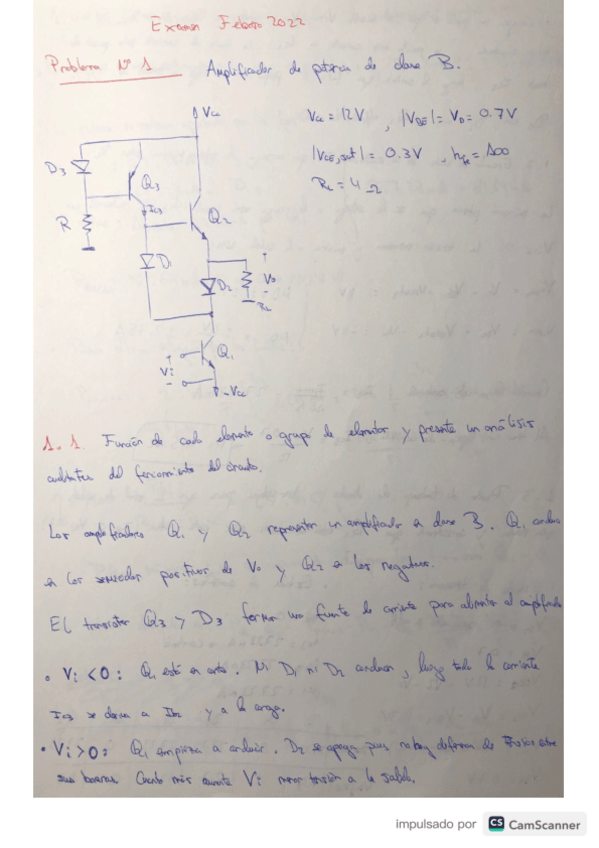 Examen Febrero 2022
Problema Nº 1 Amplificador de potencia de clase B.
Vcc
Vcc = 12V , |VBE| = VD = 0.7V
D3
Q3
|VCE,sat| = 0.3V , hfe = 100
RL = 4 Ω
IC3
Q2
R
D1
D2
Vo
RL
Q1
Vi
-Vcc
1.1 Función de cada elemento o grupo de elementos y presente un análisis
cualitativo del funcionamiento del circuito.
Los amplificadores Q1 y Q2 representan un amplificador en clase B. Q1 conduce
en los semiciclos positivos de Vo y Q2 en los negativos.
El transistor Q3 y D3 forman una fuente de corriente para alimentar al amplificador
• Vi < 0: Q1 está en corte. Ni D1 ni D2 conducen, luego toda la corriente
IC3 se deriva a IB2 y a la carga.
• Vi > 0: Q1 empieza a conducir. D2 se apaga pues no hay diferencia de tensión entre
sus bornas. Cuanto más aumente Vi menor tensión a la salida.
impulsado por CS CamScanner